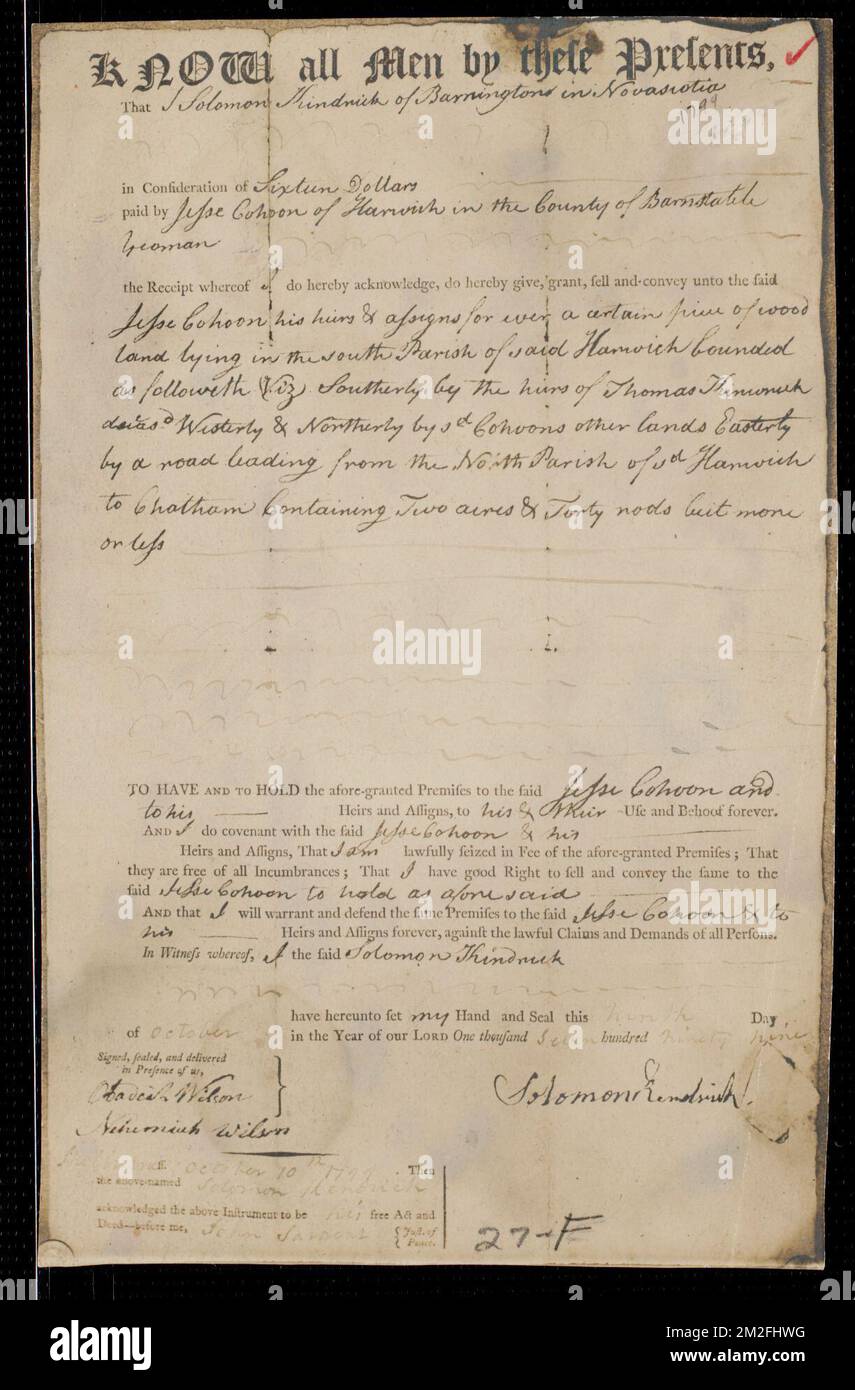 KNOW all Men by theſe Preſents,
That I Solomon Kindrick of Barrington in Novascotia
1799
in Conſideration of Sixteen Dollars
paid by Jeſse Cohoon of Harwich in the County of Barnstable
Yeoman
the Receipt whereof I do hereby acknowledge, do hereby give, grant, ſell and convey unto the ſaid
Jeſse Cohoon his heirs & aſsigns for ever a certain piece of wood
land lying in the south Parish of said Harwich bounded
as followeth (Viz) Southerly by the heirs of Thomas
Westerly & Northerly by sd Cohoons other lands Easterly
by a road leading from the North Parish of sd Harwich
to Chatham Containing Two acres & Forty rods be it more
or leſs
TO HAVE AND TO HOLD the afore-granted Premiſes to the ſaid Jeſse Cohoon and
to his Heirs and Aſſigns, to his & their Uſe and Behoof forever.
AND I do covenant with the ſaid Jeſse Cohoon & his
Heirs and Aſſigns, That I am lawfully ſeized in Fee of the afore-granted Premiſes; That
they are free of all Incumbrances; That I have good Right to ſell and convey the ſame to the
ſaid Jeſse Cohoon to hold as afore said
AND that I will warrant and defend the ſame Premiſes to the ſaid Jeſse Cohoon & to
his Heirs and Aſſigns forever, againſt the lawful Claims and Demands of all Perſons.
In Witneſs whereof, I the ſaid Solomon Kindrick
have hereunto ſet my Hand and Seal this ninth Day
of October in the Year of our LORD One thouſand Seven hundred ninety nine
Signed, ſealed, and delivered
in Preſence of us,
Wilson
Solomon Kendrick
Nehemiah Wilson
ſſ. October 10th 1799. Then
the above-named Solomon Kendrick
acknowledged the above Inſtrument to be his free Act and
Deed—before me, John Sargent { Juſt. of
Peace.
27-F
alamy
Image ID: 2M2FHWG
www.alamy.com